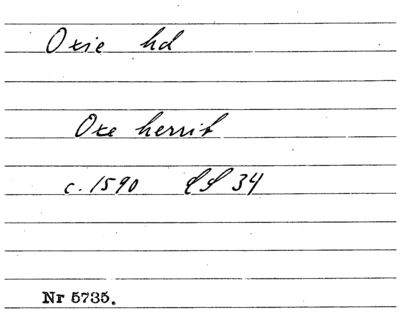 Oxie hd
Oxe herrit
c. 1590 LL 34
Nr 5735.